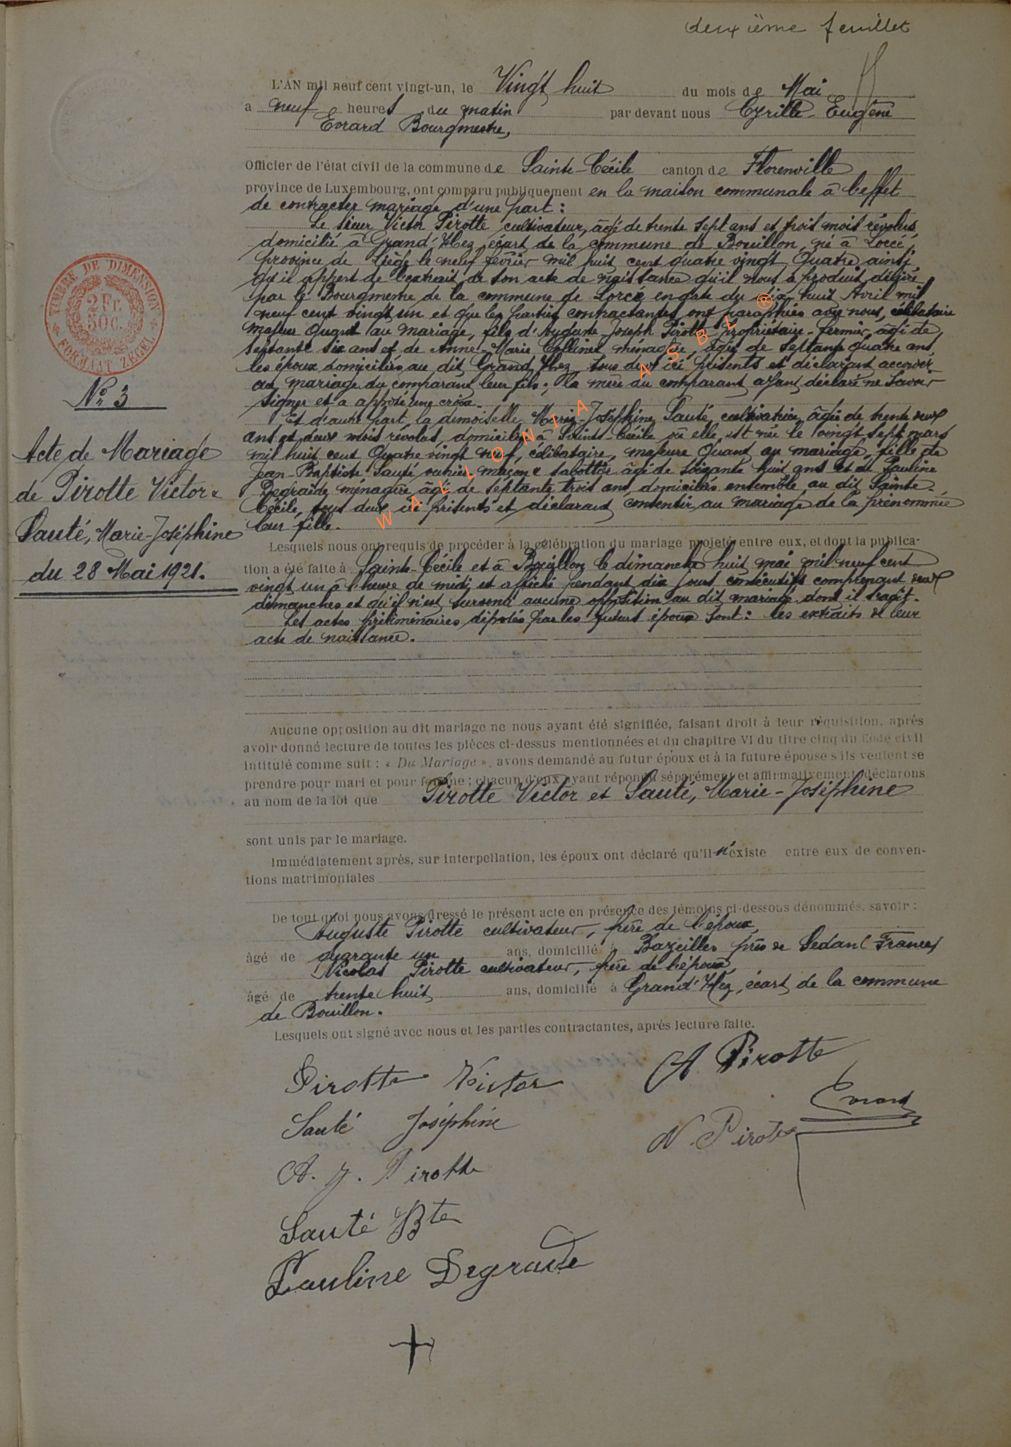 deuxième feuillet
L'AN mil neuf cent vingt-un, le Vingt huit du mois de Mai
a neuf heures du matin par devant nous Cyrille Eugène
Evrard Bourgmestre,
Officier de l'état civil de la commune de Sainte-Cécile canton de Florenville
province de Luxembourg, ont comparu publiquement en la maison communale à l'effet
de contracter mariage, d'une part :
Le sieur Victor Pirotte, cultivateur, âgé de trente sept ans et trois mois révolus
domicilié à Grand'Hez, écart de la commune de Bouillon, né à Lorcé,
province de Liège le neuf février mil huit cent quatre vingt quatre ainsi
qu'il appert de l'extrait de son acte de naissance qu'il nous a produit, délivré
par le Bourgmestre de la commune de Lorcé en date du dix huit Avril mil
neuf cent vingt un et que les parties contractantes ont paraphées avec nous, célibataire
majeur quant au mariage, fils d'Auguste Joseph Pirotte propriétaire-fermier, âgé de
septante six ans et de Anne-Marie Collinet ménagère âgée de septante quatre ans,
les époux domiciliés au dit Grand'Hez, tous deux ici présents et déclarant accorder
au mariage du comparant leur fils; la mère du comparant ayant déclaré ne savoir
signer et a apposé une croix.
Et d'autre part, la demoiselle Marie-Joséphine Sauté, cultivatrice, âgée de trente deux
ans et deux mois révolus, domiciliée à Sainte-Cécile où elle est née le vingt sept mars
mil huit cent quatre vingt neuf, célibataire, majeure quant au mariage, fille de
Jean Baptiste Sauté ouvrier maçon & sabottier âgé de soixante huit ans et de Pauline
Degraide ménagère âgée de septante trois ans domiciliés ensemble au dit Sainte-
Cécile, tous deux ici présents et déclarant consentir au mariage de la prénommée
leur fille.
Lesquels nous ont requis de procéder à la célébration du mariage projeté entre eux, et dont la publica-
tion a été faite à Sainte-Cécile et à Bouillon le dimanche huit mai mil neuf cent
vingt un à l'heure de midi et affiché pendant dix jours consécutifs comprenant deux
dimanches et qu'il n'est survenu aucune opposition au dit mariage dont il s'agit.
Les actes préliminaires déposés par les futurs époux sont : les extraits de leur
acte de naissance.
Aucune opposition au dit mariage ne nous ayant été signifiée, faisant droit à leur réquisition, après
avoir donné lecture de toutes les pièces ci-dessus mentionnées et du chapitre VI du titre cinq du Code civil
intitulé comme suit : « Du Mariage », avons demandé au futur époux et à la future épouse s'ils veulent se
prendre pour mari et pour femme ; chacun d'eux ayant répondu séparément et affirmativement, déclarons
au nom de la loi que Pirotte Victor et Sauté, Marie-Joséphine
sont unis par le mariage.
Immédiatement après, sur interpellation, les époux ont déclaré qu'il n'existe entre eux de conven-
tions matrimoniales
De tout quoi nous avons dressé le présent acte en présence des témoins ci-dessous dénommés, savoir :
Auguste Pirotte cultivateur, frère de l'époux
âgé de quarante un ans, domicilié à Bazeilles près de Sedan (France)
Nicolas Pirotte cultivateur, frère de l'époux,
âgé de trente huit ans, domicilié à Grand'Hez, écart de la commune
de Bouillon.
Lesquels ont signé avec nous et les parties contractantes, après lecture faite.
Pirotte Victor
A Pirotte
Sauté Joséphine
Evrard
N. Pirotte
A. J. Pirotte
Sauté Bte
Pauline Degraide
TIMBRE DE DIMENSION
2 Fr.
50 C.
FORMAAT ZEGEL
No 3
Acte de Mariage
de Pirotte Victor &
Sauté, Marie-Joséphine
du 28 Mai 1921.
WALLONIA ASBL ®